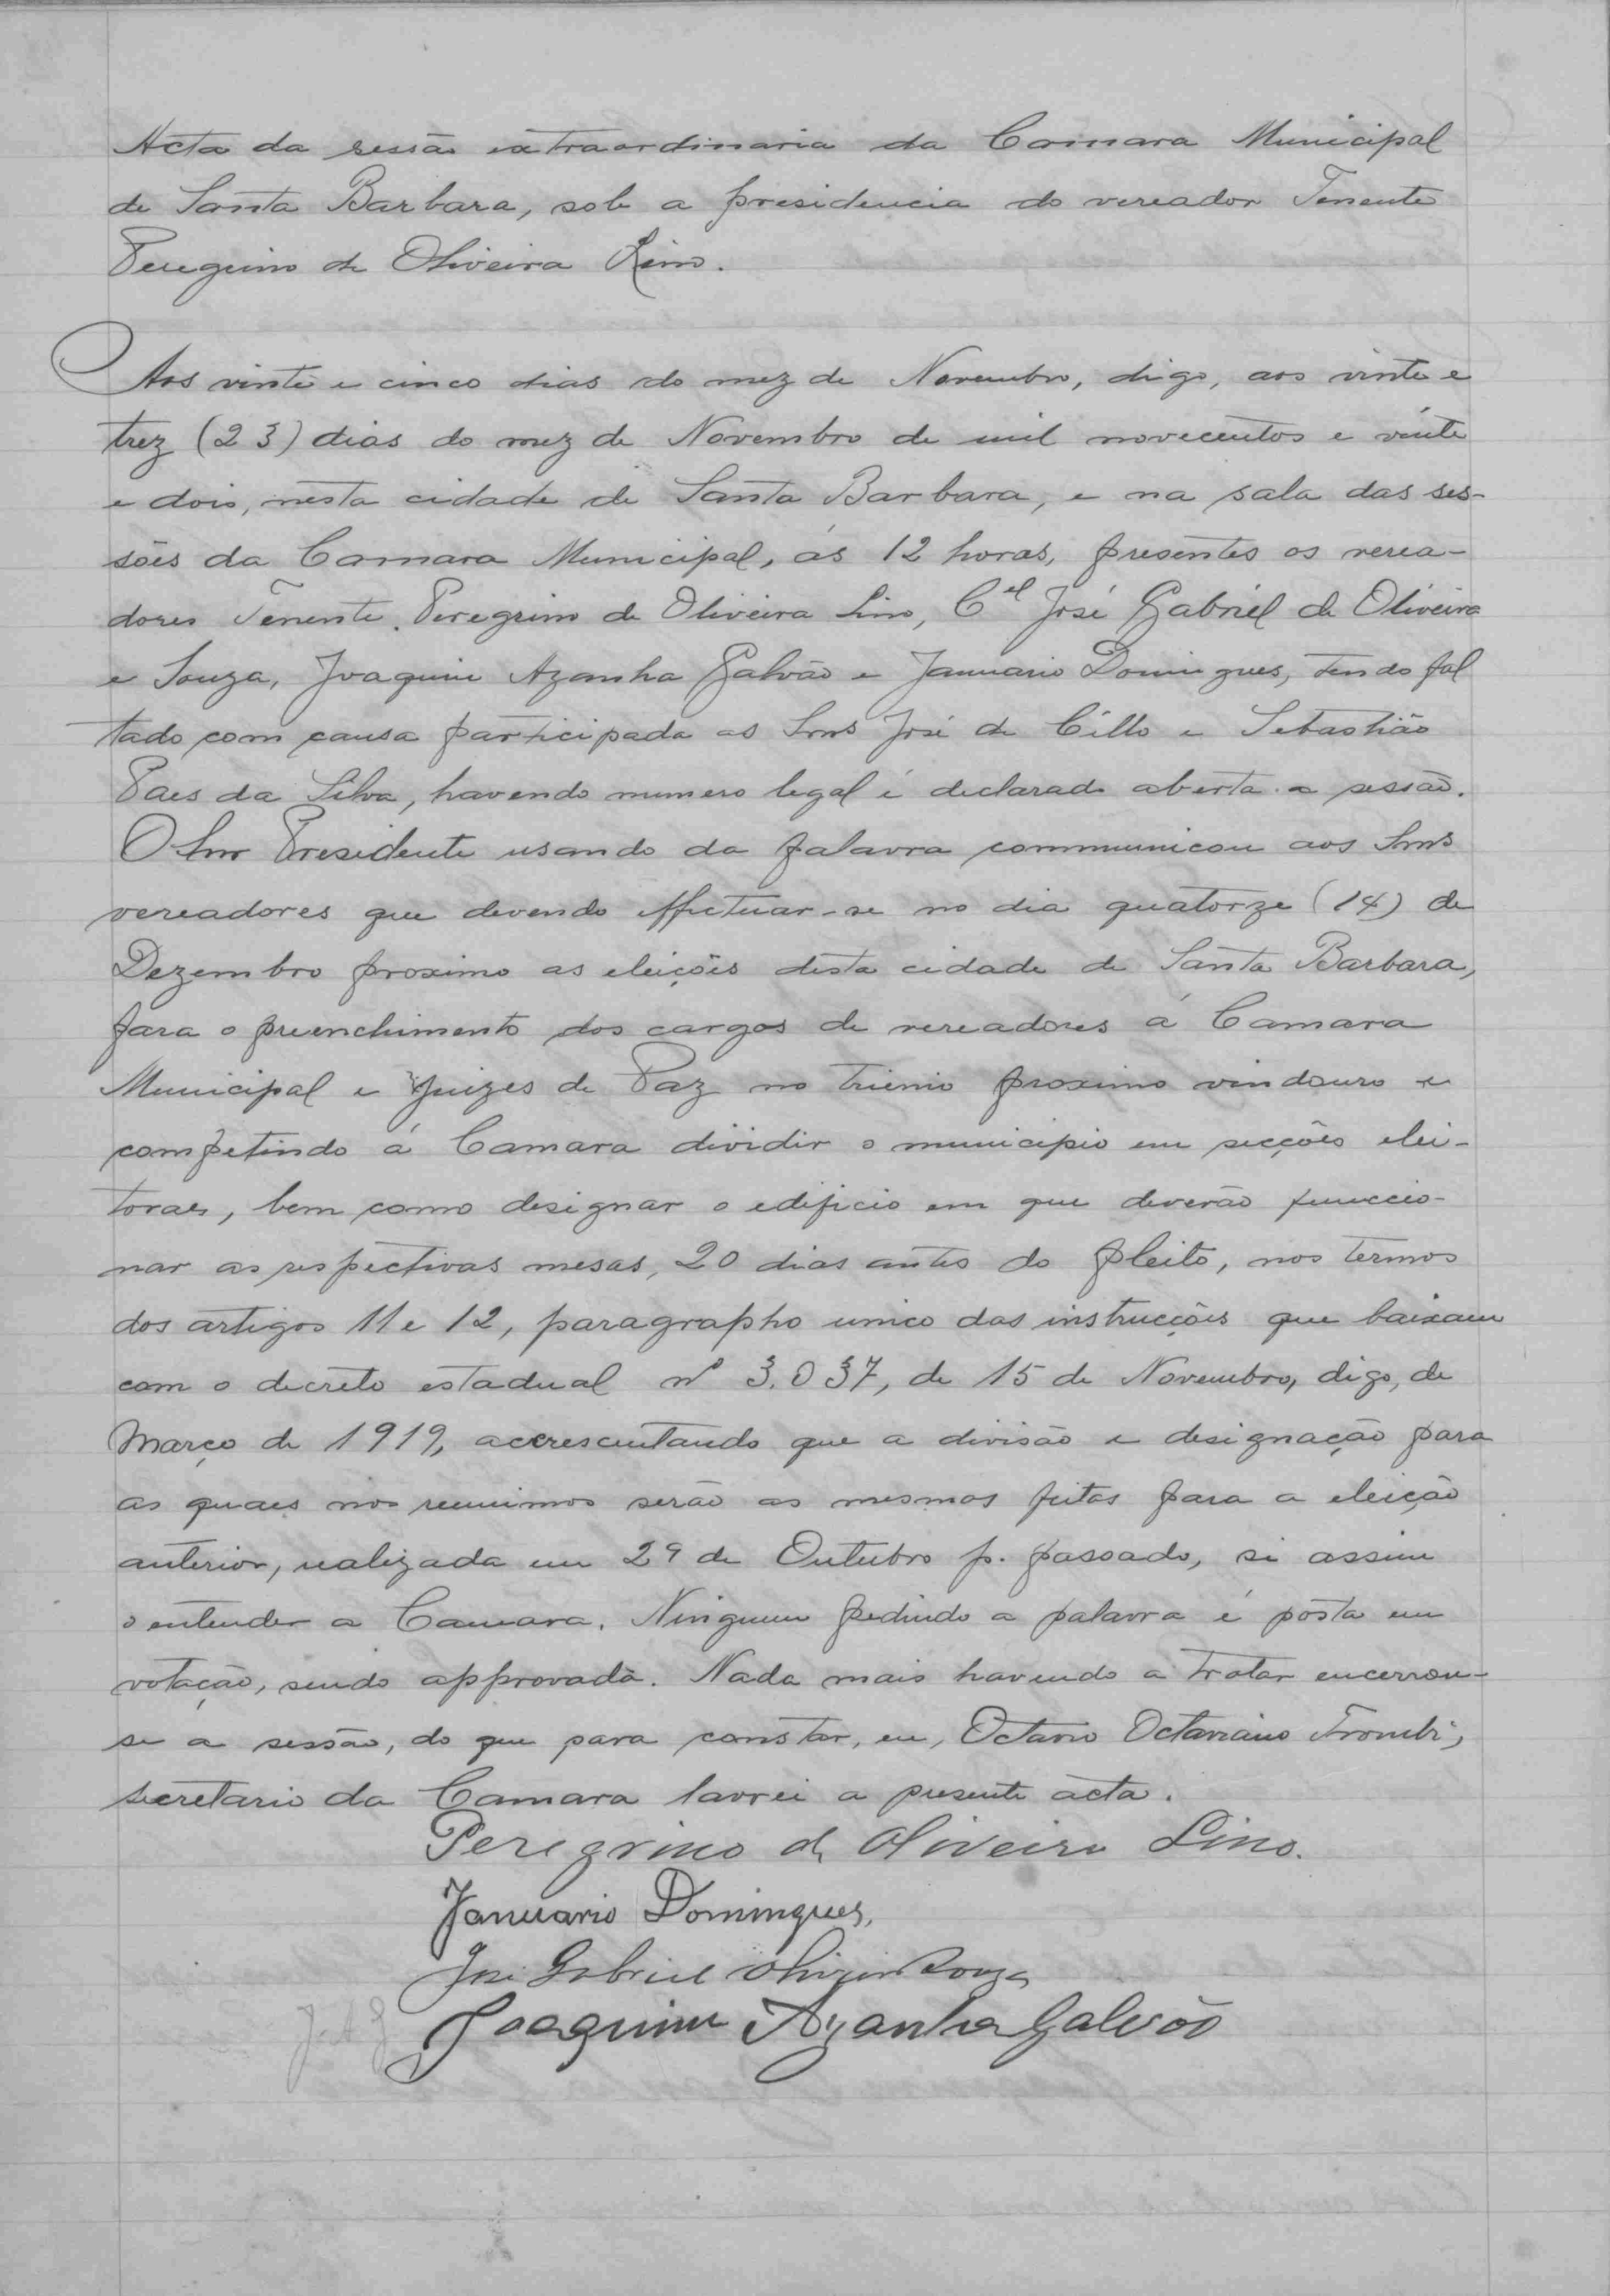 Acta da sessão extraordinaria da Camara Municipal
de Santa Barbara, sob a presidencia do vereador Tenente
Peregrino de Oliveira Lino.
Aos vinte e cinco dias do mez de Novembro, digo, aos vinte e
trez (23) dias do mez de Novembro de mil novecentos e vinte
e dois, nesta cidade de Santa Barbara, e na sala das ses-
sões da Camara Municipal, ás 12 horas, presentes os verea-
dores Tenente Peregrino de Oliveira Lino, Cel José Gabriel de Oliveira
e Souza, Joaquim Azanha Galvão e Januario Domingues, tendo fal
tado com causa participada os Snrs José de Cillo e Sebastião
Paes da Silva, havendo numero legal é declarada aberta a sessão.
O Snr Presidente usando da palavra communicou aos Snrs
vereadores que devendo effectuar-se no dia quatorze (14) de
Dezembro proximo as eleições desta cidade de Santa Barbara,
para o preenchimento dos cargos de vereadores á Camara
Municipal e Juizes de Paz no trienio proximo vindouro e
competindo á Camara dividir o municipio em secções elei-
toraes, bem como designar o edificio em que deverão funccio-
nar as respectivas mesas, 20 dias antes do pleito, nos termos
dos artigos 11 e 12, paragrapho unico das instrucções que baixam
com o decreto estadual nº 3.037, de 15 de Novembro, digo, de
Março de 1919, accrescentando que a divisão e designação para
as quaes nos reunimos serão as mesmas feitas para a eleição
anterior, realizada em 29 de Outubro p. passado, si assim
o entender a Camara. Ninguem pedindo a palavra é posta em
votação, sendo approvada. Nada mais havendo a tratar encerrou-
se a sessão, do que para constar, eu, Octavio Octaviano Trombi,
secretario da Camara lavrei a presente acta.
Peregrino de Oliveira Lino.
Januario Domingues.
José Gabriel Oliveira Souza
J. A. G Joaquim Azanha Galvão